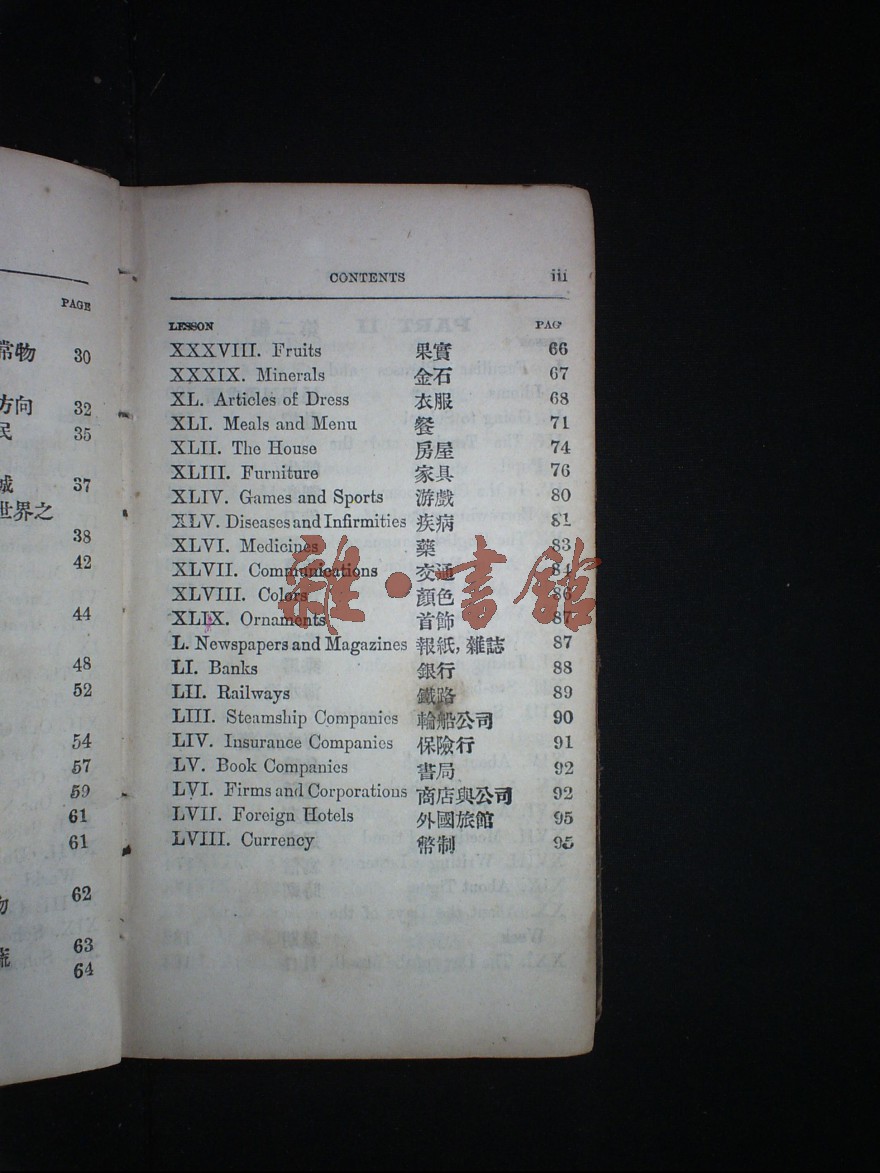 PAGE
常物 30
方向 32
民 35
城 37
世界之
38
42
44
48
52
54
57
59
61
61
物 62
63
64
CONTENTS iii
LESSON PAG
XXXVIII. Fruits 果實 66
XXXIX. Minerals 金石 67
XL. Articles of Dress 衣服 68
XLI. Meals and Menu 餐 71
XLII. The House 房屋 74
XLIII. Furniture 家具 76
XLIV. Games and Sports 游戲 80
XLV. Diseases and Infirmities 疾病 81
XLVI. Medicines 藥 83
XLVII. Communications 交通 84
XLVIII. Colors 顏色 86
XLIX. Ornaments 首飾 87
L. Newspapers and Magazines 報紙, 雜誌 87
LI. Banks 銀行 88
LII. Railways 鐵路 89
LIII. Steamship Companies 輪船公司 90
LIV. Insurance Companies 保險行 91
LV. Book Companies 書局 92
LVI. Firms and Corporations 商店與公司 92
LVII. Foreign Hotels 外國旅館 95
LVIII. Currency 幣制 95
雜·書館